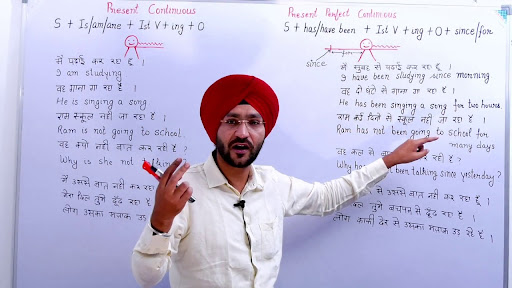 Present Continuous
S + Is/am/are + Ist V + ing + O
मैं पढ़ाई कर रहा हूँ ।
I am studying
वह गाना गा रहा है ।
He is singing a song
राम स्कूल नहीं जा रहा है ।
Ram is not going to school.
वह क्यों नहीं बात कर रही है ?
Why is she not
मैं उससे बात नहीं कर रहा हूँ ।
मेरा दिल तुझे ढूँढ रहा है ।
लोग उसका मजाक उड़ा रहे हैं ।
Present Perfect Continuous
S + has/have been + Ist V + ing + O + since/for
since
मैं सुबह से पढ़ाई कर रहा हूँ ।
I have been studying since morning
वह दो घंटों से गाना गा रहा है ।
He has been singing a song for two hours.
राम कई दिनों से स्कूल नहीं जा रहा है ।
Ram has not been going to school for
many days
वह कल से बात नहीं कर रही है ?
Why not been talking since yesterday?
से उससे बात नहीं कर रहा हूँ ।
दिल तुझे बचपन से ढूँढ रहा है ।
लोग काफी देर से उसका मजाक उड़ा रहे हैं ।